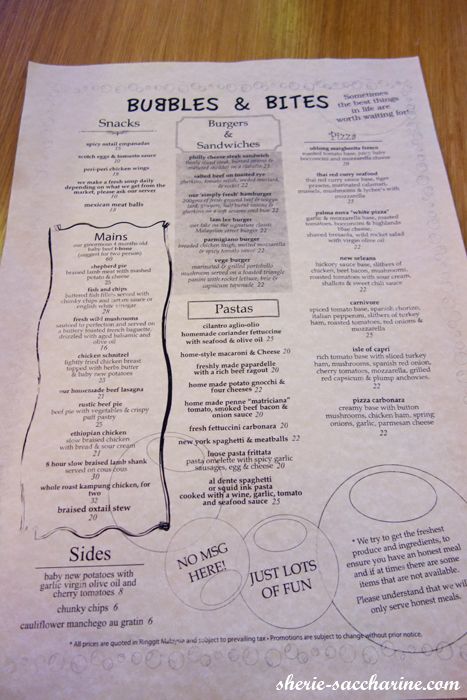 BUBBLES & BITES
Sometimes
the best things
in life are
worth waiting for!
Snacks
spicy oxtail empanadas
15
scotch eggs & tomato sauce
10
peri-peri chicken wings
19
we make a fresh soup daily
depending on what we get from the
market, please ask our server
10
mexican meat balls
18
Mains
our gnormous 4 months old
baby beef t-bone
(suggest for two person)
60
shepherd pie
braised lamb meat with mashed
potato & cheese
25
fish and chips
battered fish fillets served with
chunky chips and tartare sauce or
english white vinegar
28
fresh wild mushrooms
sautéed to perfection and served on
a buttery toasted french baguette,
drizzled with aged balsamic and
olive oil
16
chicken schnitzel
lightly fried chicken breast
topped with herbs butter
& baby new potatoes
23
our homemade beef lasagna
21
rustic beef pie
beef pie with vegetables & crispy
puff pastry
25
ethiopian chicken
slow braised chicken
with bread & sour cream
21
8 hour slow braised lamb shank
served on cous cous
30
whole roast kampung chicken, for
two
32
braised oxtail stew
20
Sides
baby new potatoes with
garlic virgin olive oil and
cherry tomatoes 8
chunky chips 6
cauliflower manchego au gratin 6
Burgers
&
Sandwiches
philly cheese steak sandwich
salted beef on toasted rye
our 'simply fresh' hamburger
lam lee burger
our take on the signature classic
Malaysian street burger 22
parmigiano burger
breaded chicken thigh, melted mozzarella
& spicy tomato sauce 22
vege burger
marinated & grilled portobello
mushroom served on a toasted triangle
Pastas
cilantro aglio-olio
homemade coriander fettuccine
with seafood & olive oil 25
home-style macaroni & Cheese 20
freshly made papardelle
with a rich beef ragout 20
home made potato gnocchi &
four cheeses 22
home made penne "matriciana"
tomato, smoked beef bacon &
onion sauce 20
fresh fettuccini carbonara 20
new york spaghetti & meatballs 22
loose pasta frittata
pasta omelette with spicy garlic
sausages, egg & cheese 20
al dente spaghetti
or squid ink pasta
cooked with a wine, garlic, tomato
and seafood sauce 25
Pizza
oblong margherita fresco
roasted tomato base, juicy baby
bocconcini and mozzarella cheese
20
thai red curry seafood
thai red curry sauce base, tiger
prawns, marinated calamari,
mussels, mushrooms & lychee's with
mozzarella
23
palma nova "white pizza"
garlic & mozzarella base, roasted
tomatoes, bocconcini & highlands
blue cheese,
shaved bresaola, wild rocket salad
with virgin olive oil
22
new orleans
hickory sauce base, slithers of
chicken, beef bacon, mushrooms,
roasted tomatoes with sour cream,
shallots & sweet chili sauce
22
carnivore
spiced tomato base, spanish chorizo,
italian pepperoni, slithers of turkey
ham, roasted tomatoes, red onions &
mozzarella
25
isle of capri
rich tomato base with sliced turkey
ham, mushrooms, spanish red onion,
cherry tomatoes, mozzarella, grilled
red capsicum & plump anchovies.
22
pizza carbonara
creamy base with button
mushrooms, chicken ham, spring
onions, garlic, parmesan cheese
22
NO MSG
HERE!
JUST LOTS
OF FUN
* We try to get the freshest
produce and ingredients, to
ensure you have an honest meal
and if at times there are some
items that are not available.
Please understand that we will
only serve honest meals.
* All prices are quoted in Ringgit Malaysia and subject to prevailing tax • Promotions are subject to change without prior notice.
sherie-saccharine.com